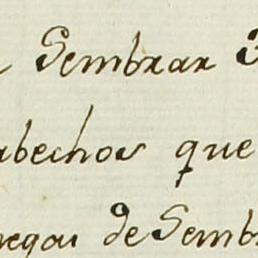 Sembrar 3
abechos que
regar de Semb